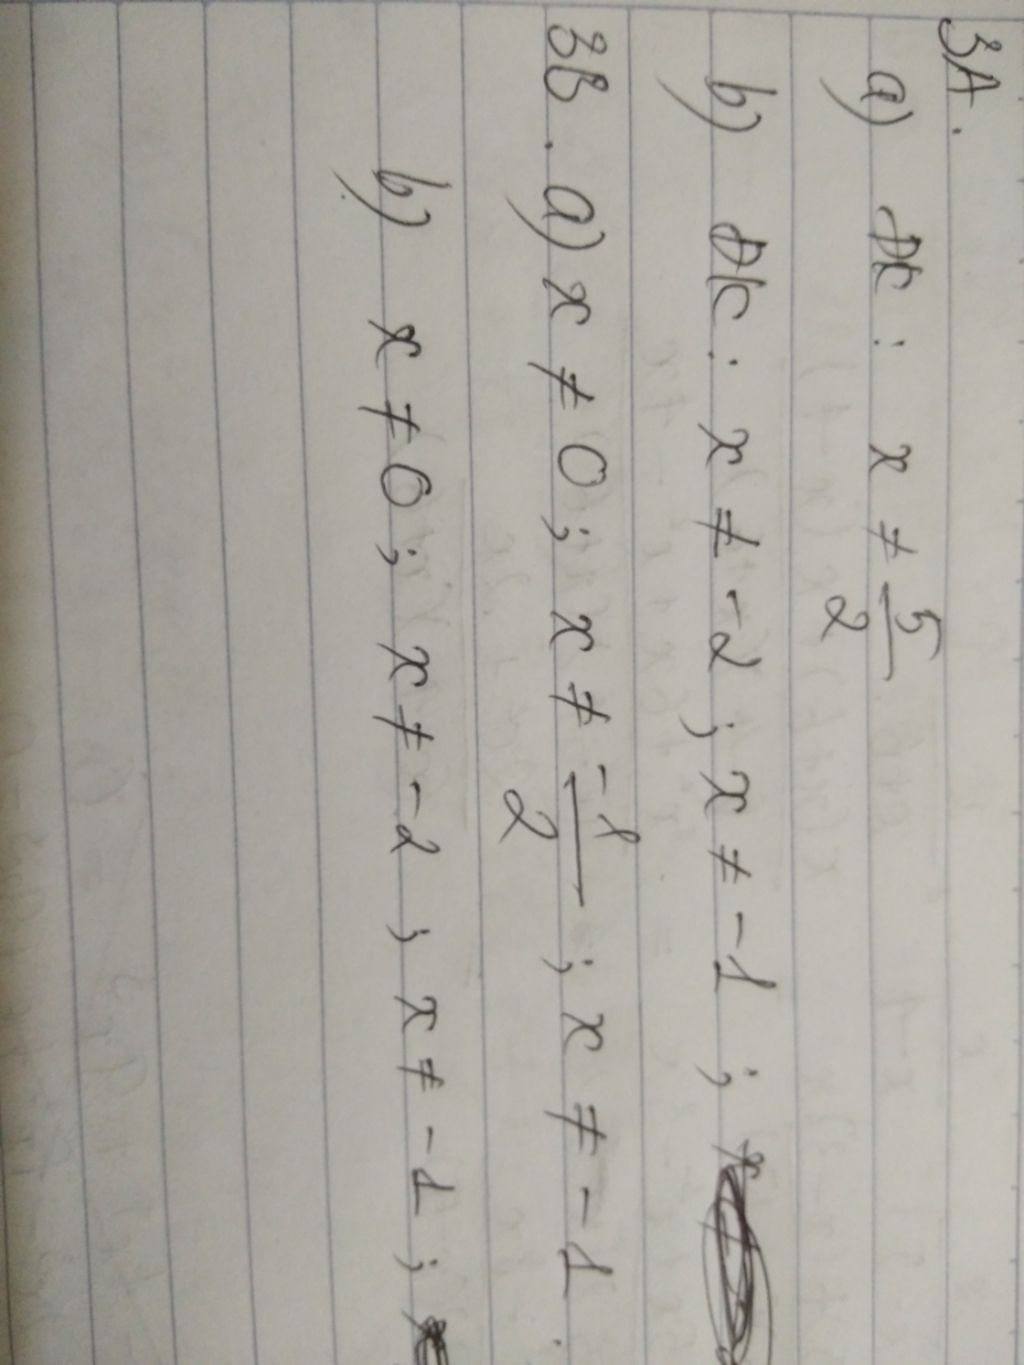 3A.
a) ĐK : x ≠ 5/2
b) ĐK : x ≠ -2 ; x ≠ -1 ;
3B. a) x ≠ 0 ; x ≠ -1/2 ; x ≠ -1.
b) x ≠ 0 ; x ≠ -2 ; x ≠ -1 ;